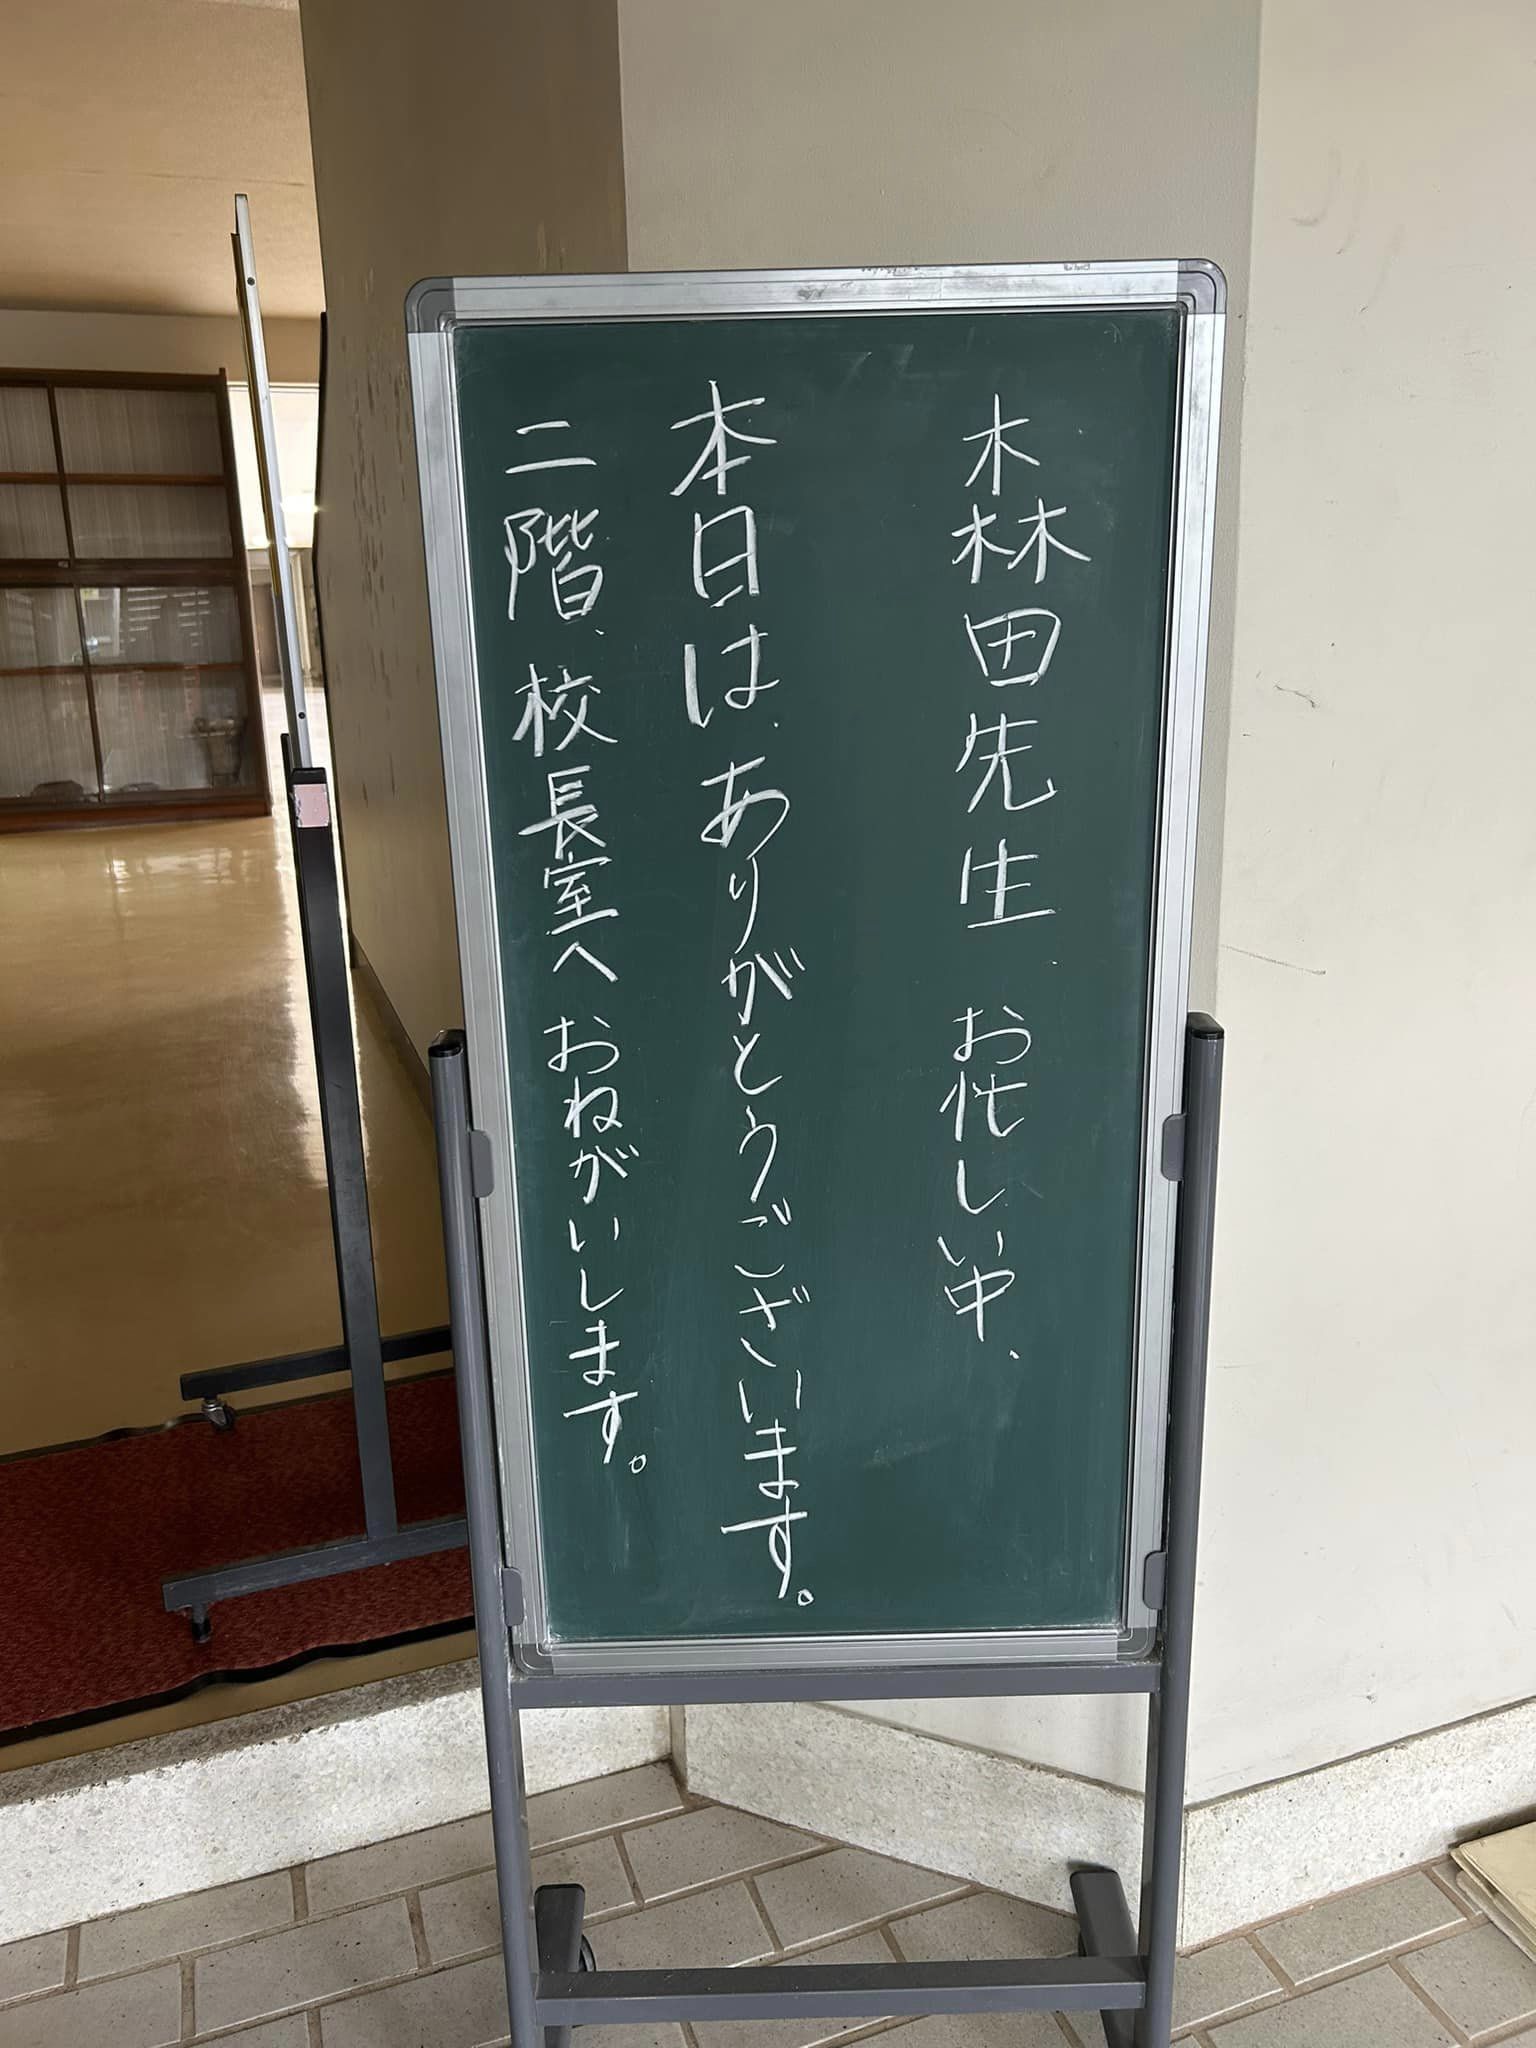 森田先生 お忙しい中、
本日は、ありがとうございます。
二階、校長室へおねがいします。